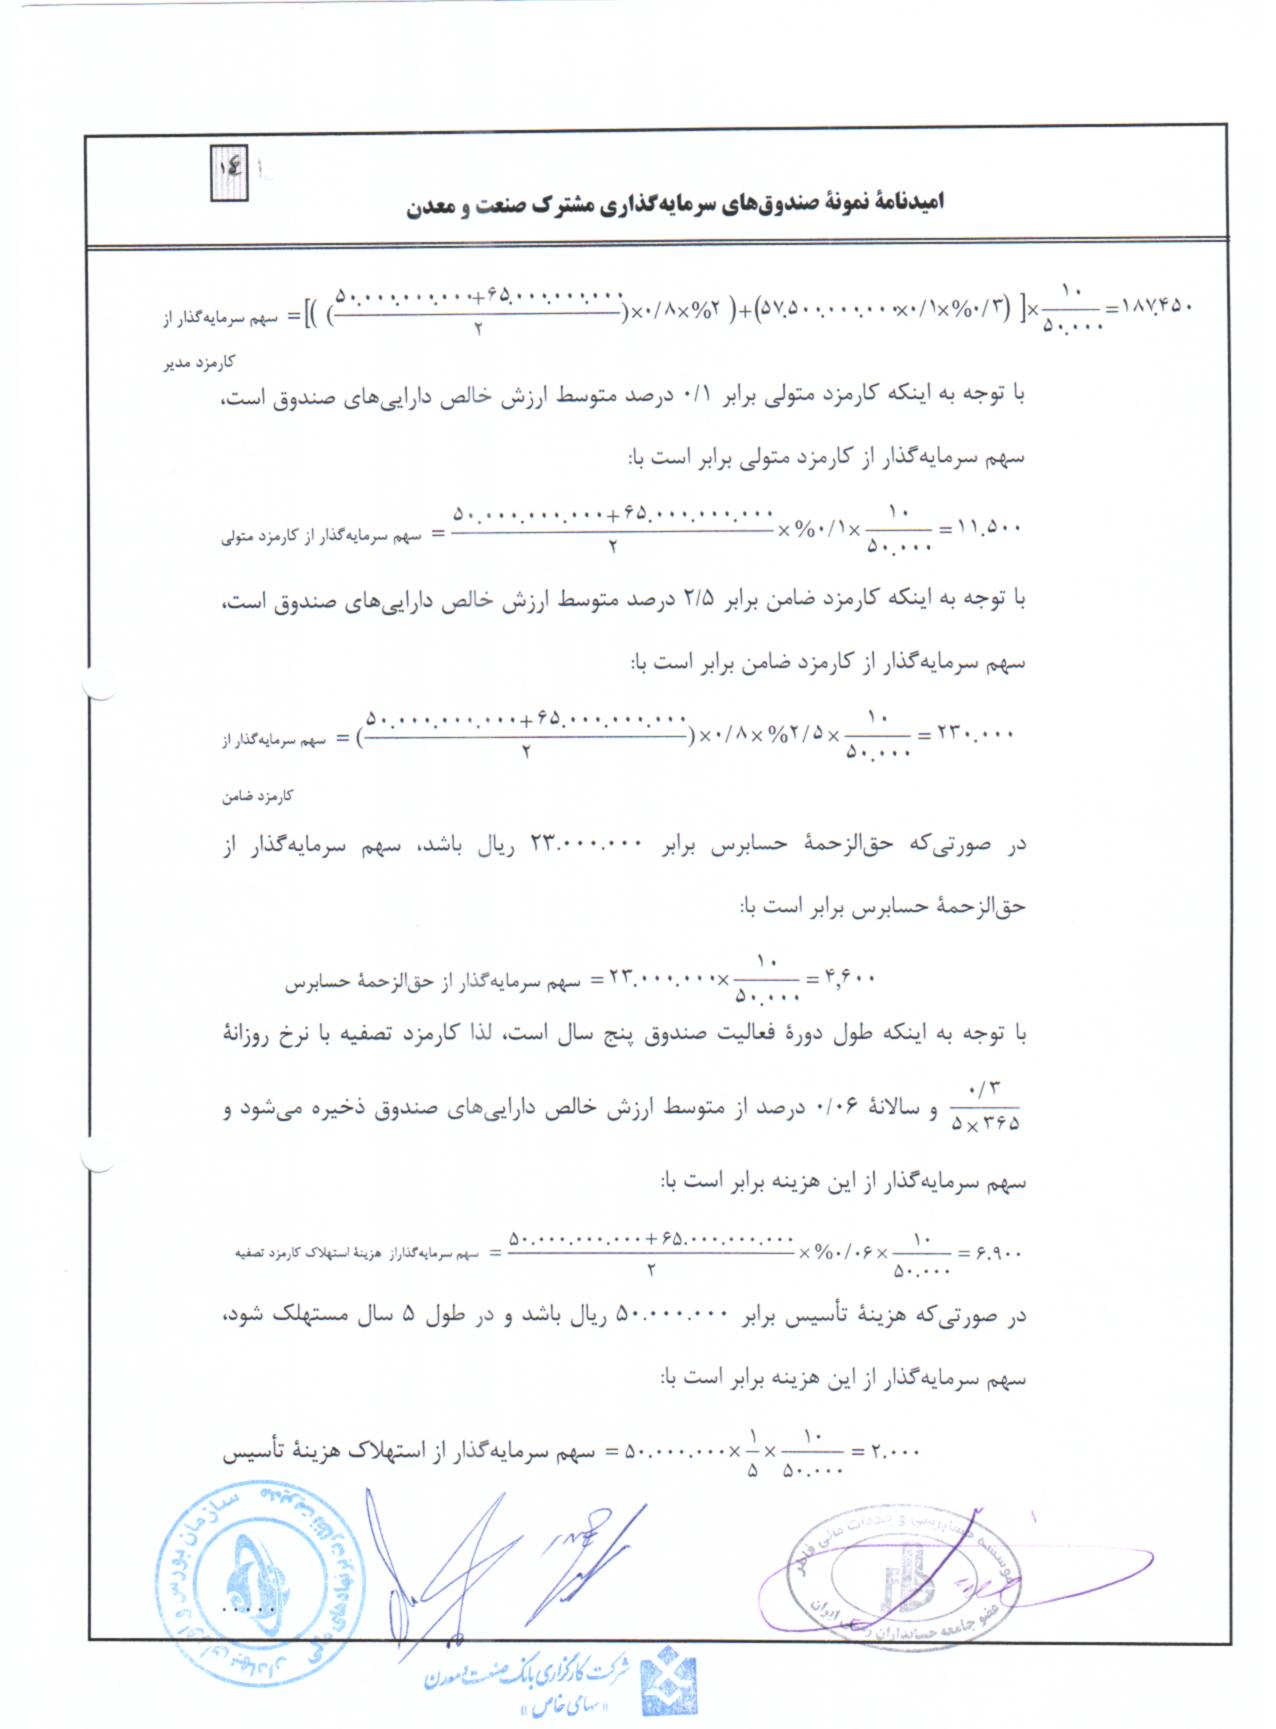 ۱۴
امیدنامهٔ نمونهٔ صندوق‌های سرمایه‌گذاری مشترک صنعت و معدن
سهم سرمایه‌گذار از = [( (۵۰.۰۰۰.۰۰۰.۰۰۰+۶۵.۰۰۰.۰۰۰.۰۰۰ / ۲)×۰/۸×%۲ )+(۵۷.۵۰۰.۰۰۰.۰۰۰×۰/۱×%۰/۳) ]×۱۰ / ۵۰.۰۰۰=۱۸۷.۴۵۰
کارمزد مدیر
با توجه به اینکه کارمزد متولی برابر ۰/۱ درصد متوسط ارزش خالص دارایی‌های صندوق است،
سهم سرمایه‌گذار از کارمزد متولی برابر است با:
سهم سرمایه‌گذار از کارمزد متولی = ۵۰.۰۰۰.۰۰۰.۰۰۰+۶۵.۰۰۰.۰۰۰.۰۰۰ / ۲ ×%۰/۱× ۱۰ / ۵۰.۰۰۰ =۱۱.۵۰۰
با توجه به اینکه کارمزد ضامن برابر ۲/۵ درصد متوسط ارزش خالص دارایی‌های صندوق است،
سهم سرمایه‌گذار از کارمزد ضامن برابر است با:
سهم سرمایه‌گذار از = (۵۰.۰۰۰.۰۰۰.۰۰۰+۶۵.۰۰۰.۰۰۰.۰۰۰ / ۲)×۰/۸×%۲/۵× ۱۰ / ۵۰.۰۰۰ =۲۳۰.۰۰۰
کارمزد ضامن
در صورتی‌که حق‌الزحمهٔ حسابرس برابر ۲۳.۰۰۰.۰۰۰ ریال باشد، سهم سرمایه‌گذار از
حق‌الزحمهٔ حسابرس برابر است با:
سهم سرمایه‌گذار از حق‌الزحمهٔ حسابرس = ۲۳.۰۰۰.۰۰۰× ۱۰ / ۵۰.۰۰۰ =۴,۶۰۰
با توجه به اینکه طول دورهٔ فعالیت صندوق پنج سال است، لذا کارمزد تصفیه با نرخ روزانهٔ
۰/۳ / ۵×۳۶۵ و سالانهٔ ۰/۰۶ درصد از متوسط ارزش خالص دارایی‌های صندوق ذخیره می‌شود و
سهم سرمایه‌گذار از این هزینه برابر است با:
سهم سرمایه‌گذاراز هزینهٔ استهلاک کارمزد تصفیه = ۵۰.۰۰۰.۰۰۰.۰۰۰+۶۵.۰۰۰.۰۰۰.۰۰۰ / ۲ ×%۰/۰۶× ۱۰ / ۵۰.۰۰۰ =۶.۹۰۰
در صورتی‌که هزینهٔ تأسیس برابر ۵۰.۰۰۰.۰۰۰ ریال باشد و در طول ۵ سال مستهلک شود،
سهم سرمایه‌گذار از این هزینه برابر است با:
سهم سرمایه‌گذار از استهلاک هزینهٔ تأسیس = ۵۰.۰۰۰.۰۰۰× ۱ / ۵ × ۱۰ / ۵۰.۰۰۰ =۲.۰۰۰
سازمان بورس و اوراق بهادار
موسسه حسابرسی و خدمات مالی فاطر
عضو جامعه حسابداران رسمی ایران
.....
شرکت کارگزاری بانک صنعت و معدن
«سهامی خاص»